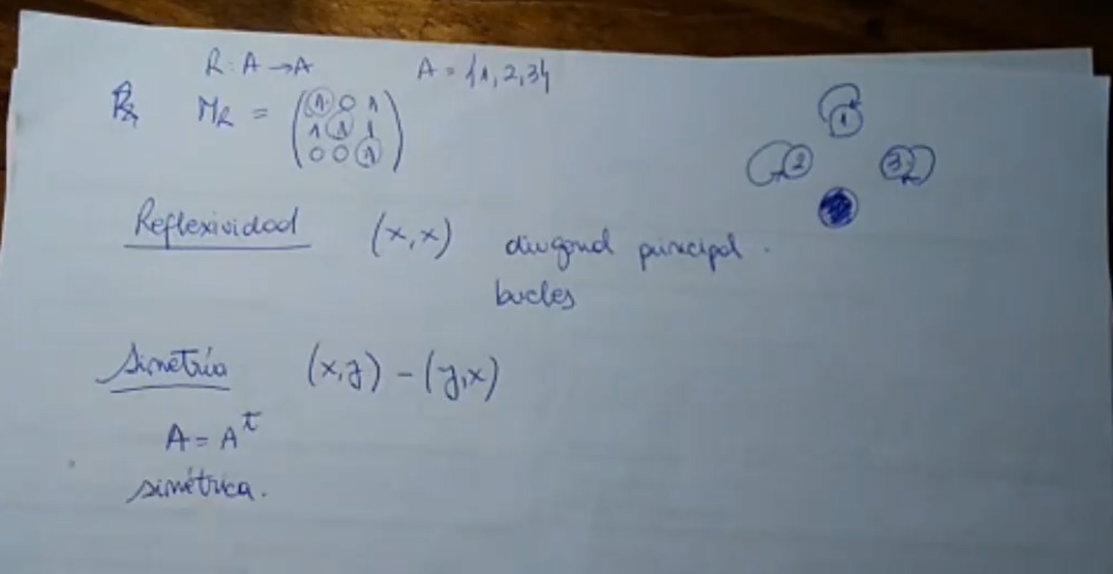 R: A → A A = {1, 2, 3}
M_R = (1 0 1
1 1 1
0 0 1)
1
2 3
Reflexividad (x,x) diagonal principal.
bucles
Simetría (x,y) - (y,x)
A = A^t
simétrica.